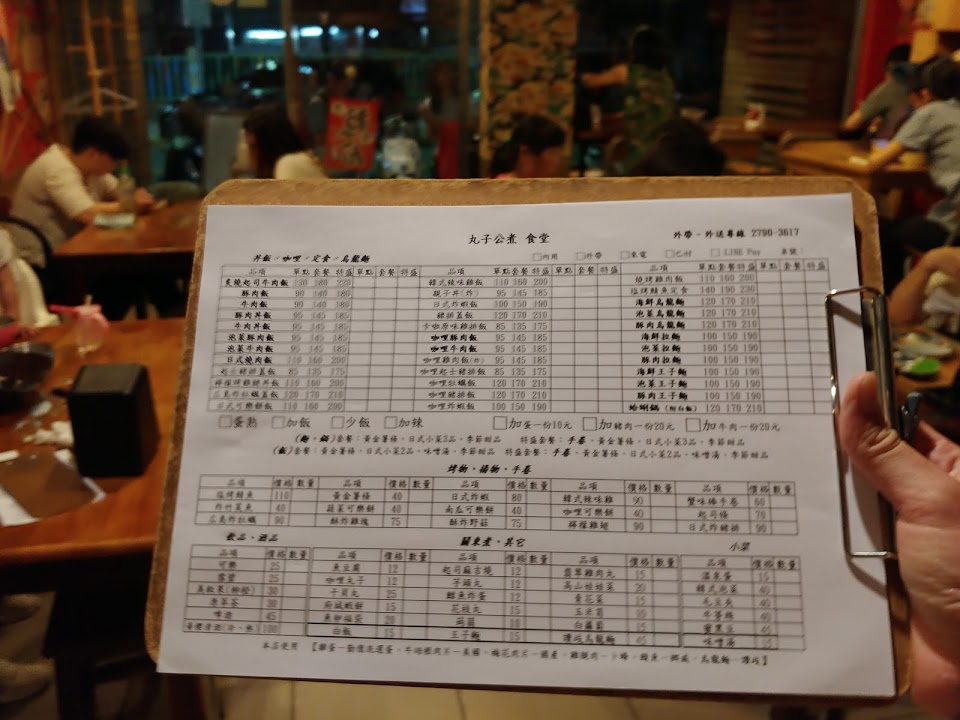 丸子公煮 食堂
外帶、外送專線 2790-3617
丼飯/咖哩/定食/烏龍麵
內用 外帶 來電 已付 LINE Pay 桌號:
品項 單點 套餐 特盛 單點 套餐 特盛 品項 單點 套餐 特盛 單點 套餐 特盛 品項 單點 套餐 特盛 單點 套餐 特盛
炙燒起司牛肉飯 韓式辣味雞飯 110 160 200 燒烤雞肉飯 110 160 200
豚肉飯 90 140 180 親子丼(炸) 95 145 185 塩烤鯖魚定食 140 190 230
牛肉飯 90 140 180 日式炸蝦飯 100 150 190 海鮮烏龍麵 120 170 210
豚肉丼飯 95 145 185 豬排蓋飯 120 170 210 泡菜烏龍麵 120 170 210
牛肉丼飯 95 145 185 卡啦原味雞排飯 85 135 175 豚肉烏龍麵 120 170 210
泡菜豚肉飯 95 145 185 咖哩豚肉飯 95 145 185 海鮮拉麵 100 150 190
泡菜牛肉飯 95 145 185 咖哩牛肉飯 95 145 185 泡菜拉麵 100 150 190
日式燒肉飯 110 160 200 咖哩雞肉飯(炸) 95 145 185 豚肉拉麵 100 150 190
起士豬排飯 85 135 175 咖哩起士豬排飯 85 135 175 海鮮王子麵 100 150 190
檸檬烤雞腿丼飯 110 160 200 咖哩牡蠣飯 120 170 210 泡菜王子麵 100 150 190
廣島炸牡蠣蓋飯 120 170 210 咖哩豬排飯 120 170 210 豚肉王子麵 100 150 190
日式可樂餅飯 110 160 200 咖哩炸蝦飯 100 150 190 蛤蜊鍋 (附白飯) 120 170 210
蛋熟 加飯 少飯 加辣 加蛋一份10元 加豬肉一份20元 加牛肉一份20元
(麵、鍋)套餐:黃金薯條、日式小菜3品、季節甜品 特盛套餐:手卷、黃金薯條、日式小菜3品、季節甜品
(飯)套餐:黃金薯條、日式小菜2品、味噌湯、季節甜品 特盛套餐:手卷、黃金薯條、日式小菜2品、味噌湯、季節甜品
烤物、揚物、手卷
品項 價格 數量 品項 價格 數量 品項 價格 數量 品項 價格 數量 品項 價格 數量
塩烤鯖魚 110 黃金薯條 40 日式炸蝦 80 韓式辣味雞 90 蟹味棒手卷 60
炸竹莢魚 40 蔬菜可樂餅 40 南瓜可樂餅 40 咖哩可樂餅 40 起司條 70
廣島炸牡蠣 90 酥炸雞塊 75 酥炸野菇 75 檸檬雞翅 90 日式炸豬排 90
飲品、酒品 關東煮、其它 小菜
品項 價格 數量 品項 價格 數量 品項 價格 數量 品項 價格 數量 品項 價格 數量
可樂 25 魚豆腐 12 起司麻吉燒 12 翡翠雞肉丸 15 溫泉蛋 15
雪碧 25 咖哩丸子 12 芋頭丸 12 高山娃娃菜 20 韓式泡菜 40
美粒果(柳橙) 30 干貝丸 25 鱈魚炸蛋 12 黃花菜 15 毛豆夾 40
原萃茶 30 府城蝦餅 15 花枝丸 15 玉米筍 10 牛蒡絲 40
啤酒 45 魚卵福袋 20 蒟蒻 10 白蘿蔔 15 45
黃櫻清酒(冷、熱) 100 白飯 15 王子麵 15 讚岐烏龍麵 45 味噌湯 15